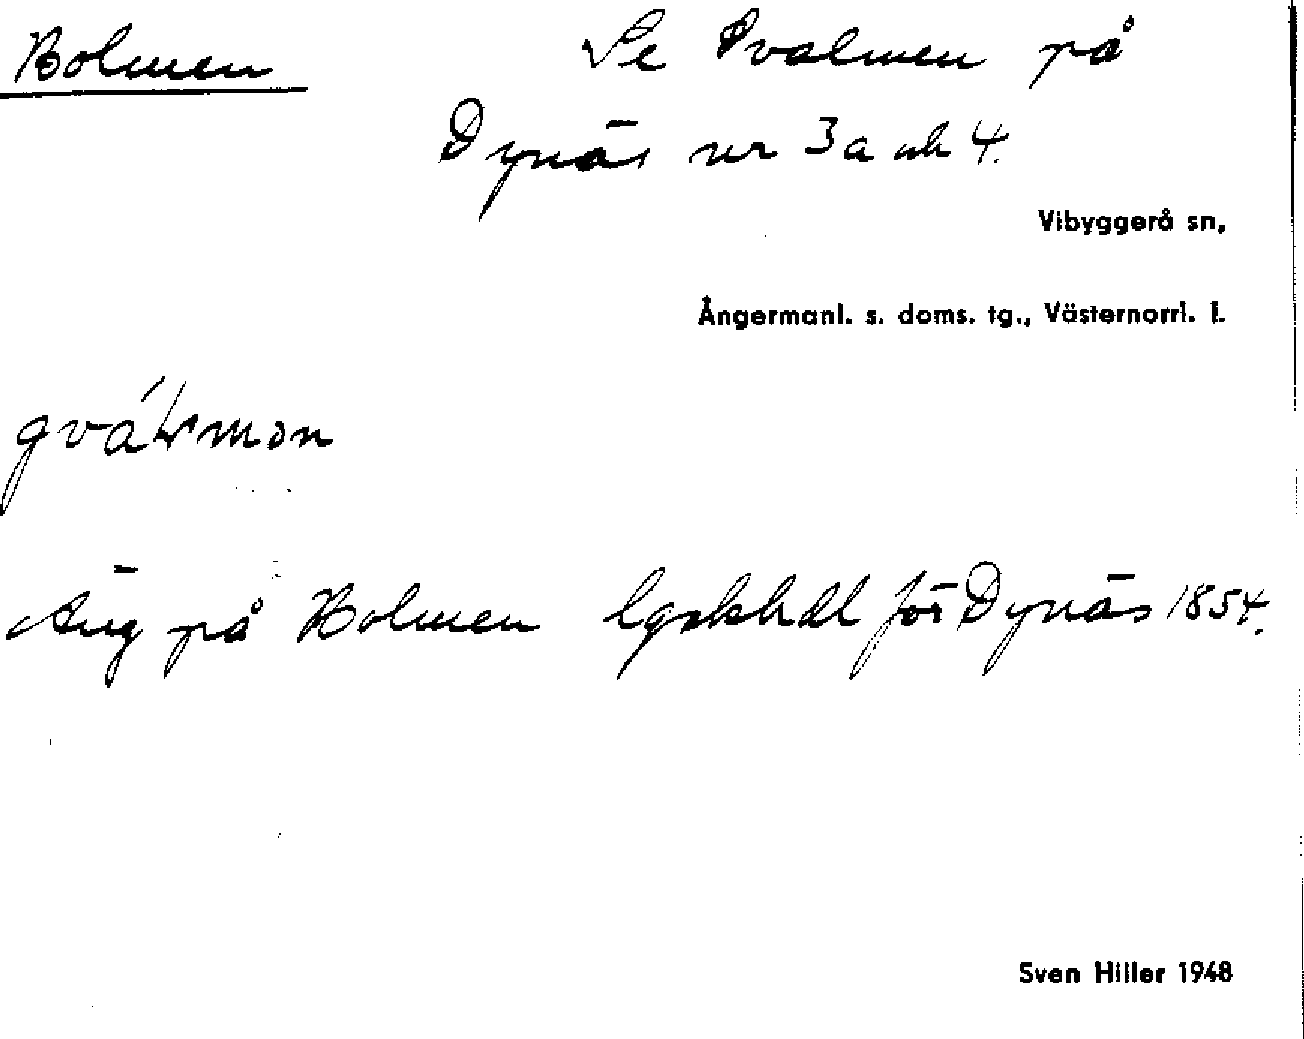 Bolmen Se Svalmen på
Dynäs nr 3a och 4.
Vibyggerå sn,
Ångermanl. s. doms. tg., Västernorrl. l.
Äng på Bolmen lgskhdl för Dynäs 1854.
Sven Hiller 1948